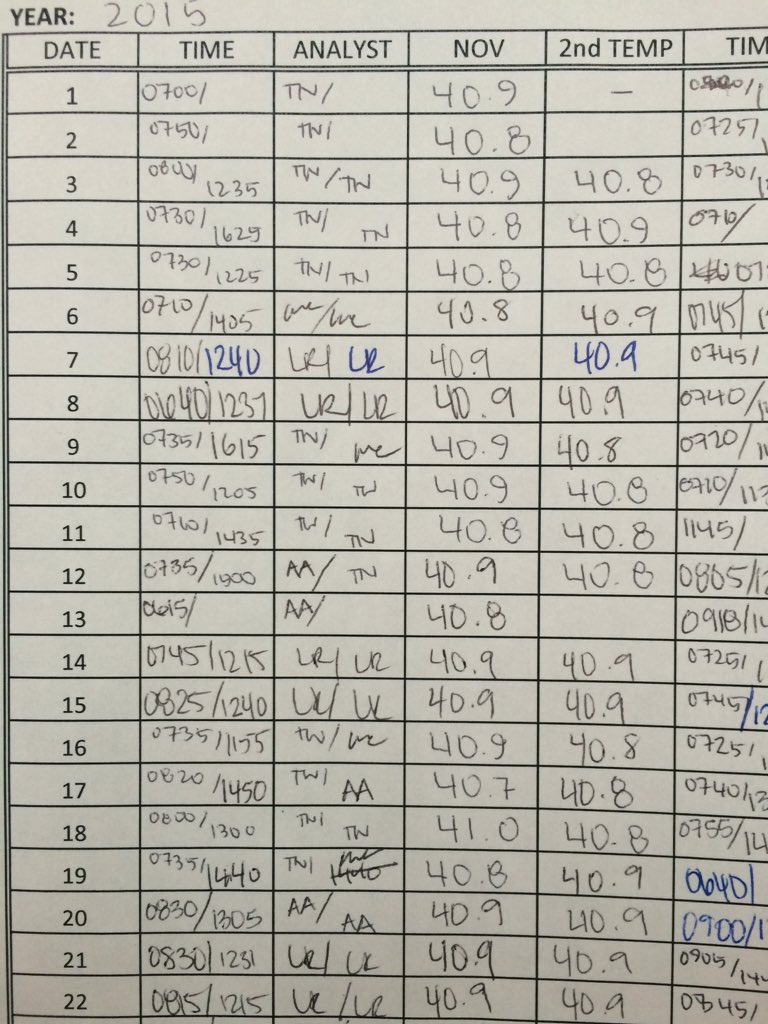 YEAR: 2015
DATE TIME ANALYST NOV 2nd TEMP TIM
1 0700/ TN/ 40.9 —
2 0750/ TN/ 40.8 0725/
3 1235 TW/TW 40.9 40.8 0730/
4 0730/1629 TN/ TN 40.8 40.9 0710/
5 0730/1225 TN/ TN 40.8 40.8
6 0710/1405 40.8 40.9 0745/
7 0810/1240 LR/ LR 40.9 40.9 0745/
8 0640/1237 LR/ LR 40.9 40.9 0740/
9 0735/1615 TN/ 40.9 40.8 0720/
10 0750/1205 TW/ TW 40.9 40.8 0710/
11 0710/1435 TW/ TN 40.8 40.8 1145/
12 0735/1900 AA/ TN 40.9 40.8 0805/
13 0615/ AA/ 40.8 0918/
14 0745/1215 LR/ LR 40.9 40.9 0725/
15 0825/1240 LR/ LR 40.9 40.9 0745/
16 0735/1155 TW/ 40.9 40.8 0725/
17 0820/1450 TW/ AA 40.7 40.8 0740/
18 0800/1300 TN/ TW 41.0 40.8 0755/
19 0735/1440 TN/ 40.8 40.9 0640/
20 0830/1305 AA/ AA 40.9 40.9 0900/
21 0830/1231 LR/ LR 40.9 40.9 0905/
22 0815/1215 LR/LR 40.9 40.9 0745/